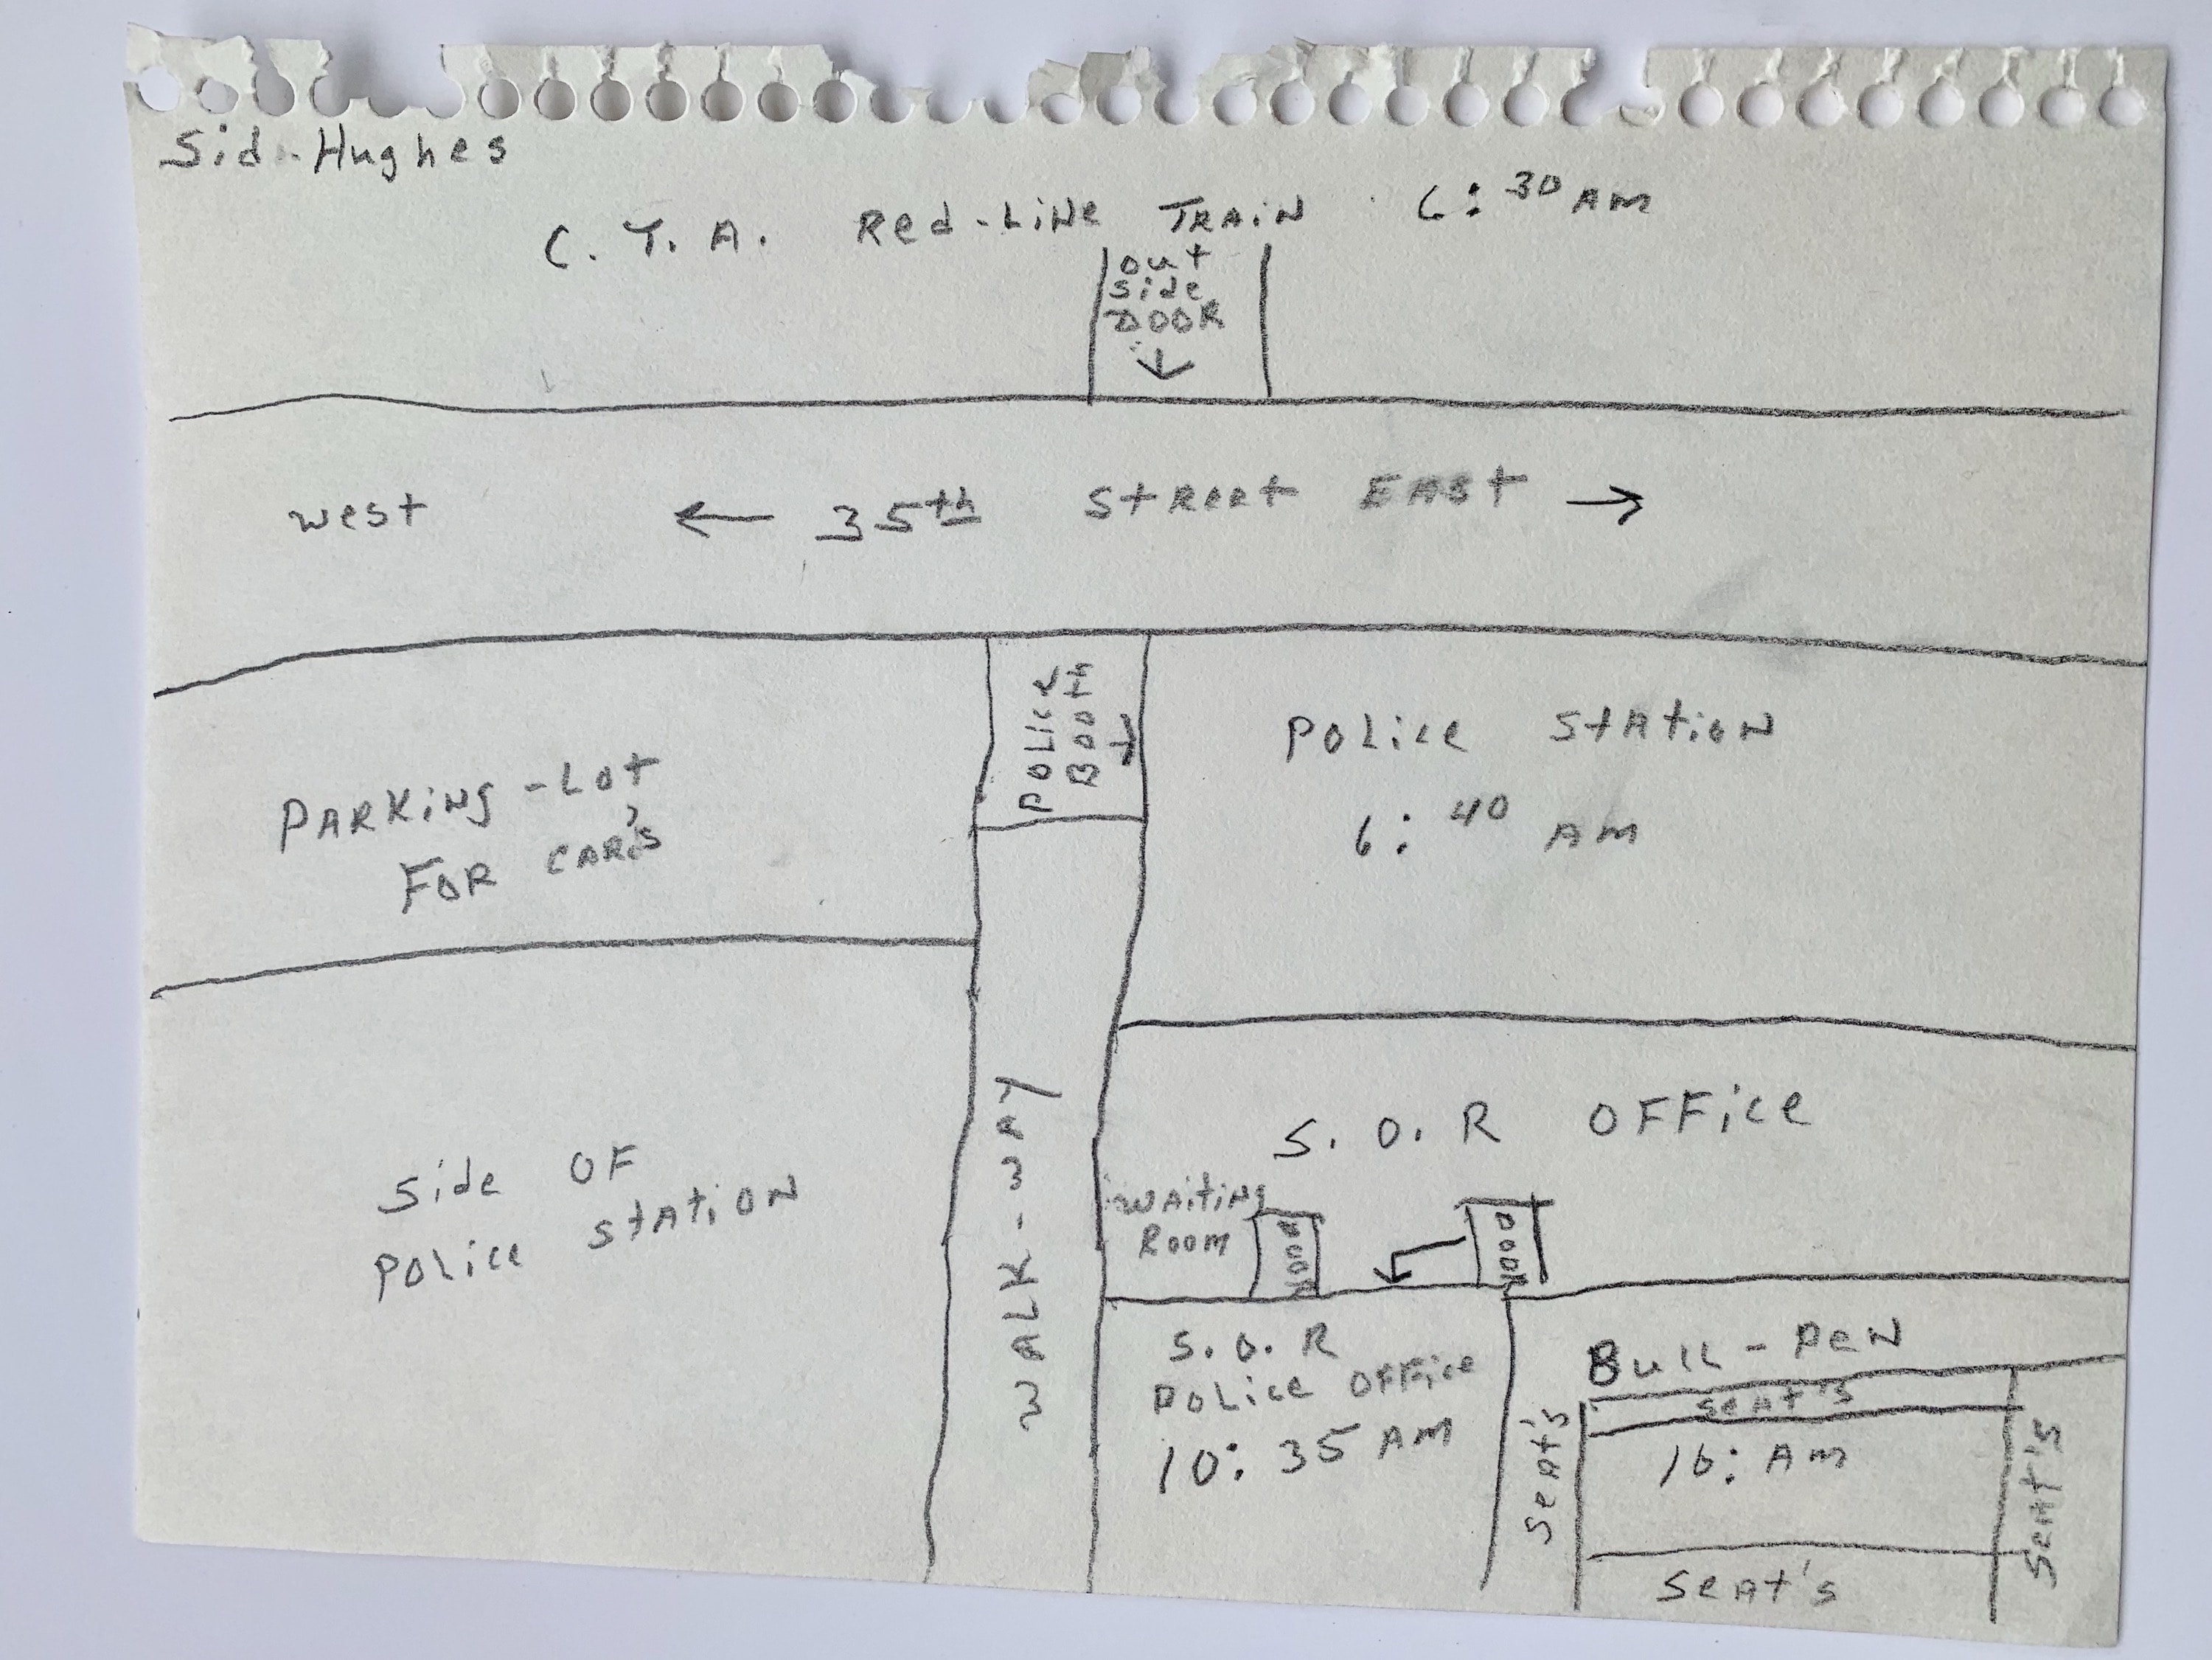 Sid-Hughes
C.T.A. Red-Line Train 6:30 AM
out
side
DOOR
west ← 35th Street EAST →
Police
Booth
Police Station
6:40 AM
PARKING-Lot
FOR CAR'S
WALK-WAY
S.O.R OFFice
Side OF
Police Station
WAiting
Room
DOOR
DOOR
S.O.R
Police OFFice
10:35 AM
Bull-Pen
Seat's
Seat's
Seat's
AM
Seat's